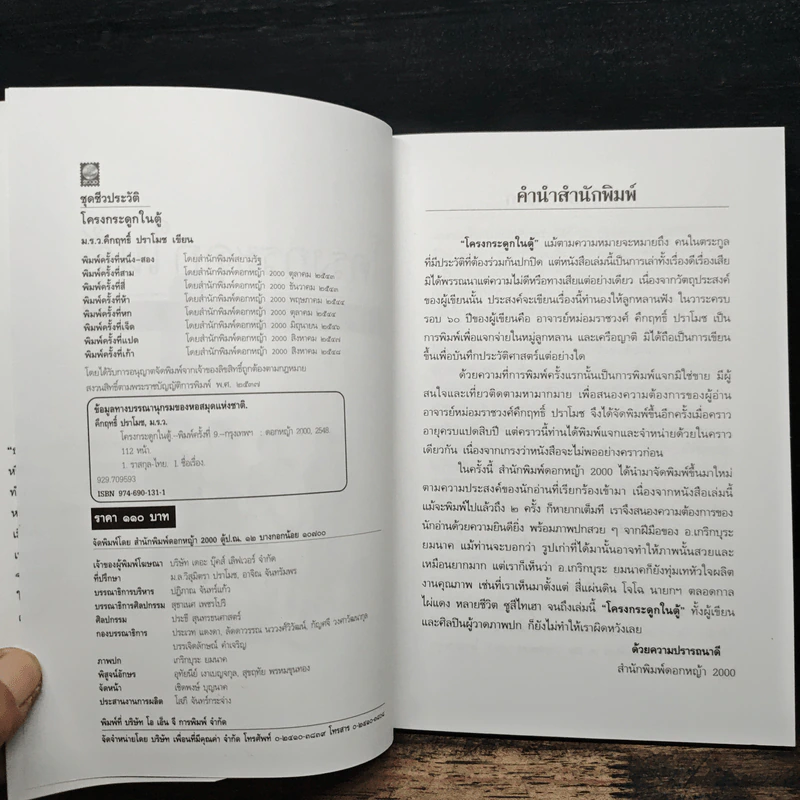 ชุดชีวประวัติ
โครงกระดูกในตู้
ม.ร.ว.คึกฤทธิ์ ปราโมช เขียน
พิมพ์ครั้งที่หนึ่ง-สอง โดยสำนักพิมพ์สยามรัฐ
พิมพ์ครั้งที่สาม โดยสำนักพิมพ์ดอกหญ้า 2000 ตุลาคม ๒๕๔๓
พิมพ์ครั้งที่สี่ โดยสำนักพิมพ์ดอกหญ้า 2000 ธันวาคม ๒๕๔๓
พิมพ์ครั้งที่ห้า โดยสำนักพิมพ์ดอกหญ้า 2000 พฤษภาคม ๒๕๔๔
พิมพ์ครั้งที่หก โดยสำนักพิมพ์ดอกหญ้า 2000 ตุลาคม ๒๕๔๔
พิมพ์ครั้งที่เจ็ด โดยสำนักพิมพ์ดอกหญ้า 2000 มิถุนายน ๒๕๔๖
พิมพ์ครั้งที่แปด โดยสำนักพิมพ์ดอกหญ้า 2000 สิงหาคม ๒๕๔๗
พิมพ์ครั้งที่เก้า โดยสำนักพิมพ์ดอกหญ้า 2000 สิงหาคม ๒๕๔๘
โดยได้รับการอนุญาตจัดพิมพ์จากเจ้าของลิขสิทธิ์ถูกต้องตามกฎหมาย
สงวนสิทธิ์ตามพระราชบัญญัติการพิมพ์ พ.ศ. ๒๕๓๗
ข้อมูลทางบรรณานุกรมของหอสมุดแห่งชาติ.
คึกฤทธิ์ ปราโมช, ม.ร.ว.
โครงกระดูกในตู้.-พิมพ์ครั้งที่ 9.-กรุงเทพฯ : ดอกหญ้า 2000, 2548.
112 หน้า.
1. ราสกุล-ไทย. I. ชื่อเรื่อง.
929.709593
ISBN 974-690-131-1
ราคา ๑๑๐ บาท
จัดพิมพ์โดย สำนักพิมพ์ดอกหญ้า 2000 ตู้ป.ณ. ๑๒ บางกอกน้อย ๑๐๗๐๐
เจ้าของผู้พิมพ์โฆษณา บริษัท เดอะ บุ๊คส์ เลิฟเวอร์ จำกัด
ที่ปรึกษา ม.ล.วิสุมิตรา ปราโมช, อาจิณ จันทรัมพร
บรรณาธิการบริหาร ปฏิภาณ จันทร์แก้ว
บรรณาธิการศิลปกรรม สุชาเนศ เพชรโปรี
ศิลปกรรม ประธี สุนทรรชตศาสตร์
กองบรรณาธิการ ประเวท แดงดา, ลัดดาวรรณ
บรรเจิดลักษณ์ คำเจริญ
ภาพปก เกริกบุระ ยมนาค
พิสูจน์อักษร อุทัยนีย์ เงาเบญจกุล, สุขฤทัย พรหมขุนทอง
จัดหน้า เชิดพงษ์ บุญนาค
ประสานงานการผลิต โสภี จันทร์กระจ่าง
พิมพ์ที่ บริษัท โอ เอ็น จี การพิมพ์ จำกัด
จัดจำหน่ายโดย บริษัท เพื่อนที่มีคุณค่า จำกัด โทรศัพท์ ๐-๒๔๑๐-๓๘๓๙ โทรสาร
คำนำสำนักพิมพ์
"โครงกระดูกในตู้" แม้ตามความหมายจะหมายถึง คนในตระกูล
ที่มีประวัติที่ต้องร่วมกันปกปิด แต่หนังสือเล่มนี้เป็นการเล่าทั้งเรื่องดีเรื่องเสีย
มิได้พรรณนาแต่ความไม่ดีหรือทางเสียแต่อย่างเดียว เนื่องจากวัตถุประสงค์
ของผู้เขียนนั้น ประสงค์จะเขียนเรื่องนี้ทำนองให้ลูกหลานฟัง ในวาระครบ
รอบ ๖๐ ปีของผู้เขียนคือ อาจารย์หม่อมราชวงศ์ คึกฤทธิ์ ปราโมช เป็น
การพิมพ์เพื่อแจกจ่ายในหมู่ลูกหลาน และเครือญาติ มิได้ถือเป็นการเขียน
ขึ้นเพื่อบันทึกประวัติศาสตร์แต่อย่างใด
ด้วยความที่การพิมพ์ครั้งแรกนั้นเป็นการพิมพ์แจกมิใช่ขาย มีผู้
สนใจและเที่ยวติดตามหามากมาย เพื่อสนองความต้องการของผู้อ่าน
อาจารย์หม่อมราชวงศ์คึกฤทธิ์ ปราโมช จึงได้จัดพิมพ์ขึ้นอีกครั้งเมื่อคราว
อายุครบแปดสิบปี แต่คราวนี้ท่านได้พิมพ์แจกและจำหน่ายด้วยในคราว
เดียวกัน เนื่องจากเกรงว่าหนังสือจะไม่พออย่างคราวก่อน
ในครั้งนี้ สำนักพิมพ์ดอกหญ้า 2000 ได้นำมาจัดพิมพ์ขึ้นมาใหม่
ตามความประสงค์ของนักอ่านที่เรียกร้องเข้ามา เนื่องจากหนังสือเล่มนี้
แม้จะพิมพ์ไปแล้วถึง ๒ ครั้ง ก็หายากเต็มที เราจึงสนองความต้องการของ
นักอ่านด้วยความยินดียิ่ง พร้อมภาพปกสวย ๆ จากฝีมือของ อ.เกริกบุระ
ยมนาค แม้ท่านจะบอกว่า รูปเก่าที่ได้มานั้นอาจทำให้ภาพนั้นสวยและ
เหมือนยากมาก แต่เราก็เห็นว่า อ.เกริกบุระ ยมนาคก็ยังทุ่มเทหัวใจผลิต
งานคุณภาพ เช่นที่เราเห็นมาตั้งแต่ สี่แผ่นดิน โจโฉ นายกฯ ตลอดกาล
ไผ่แดง หลายชีวิต ซูสีไทเฮา จนถึงเล่มนี้ "โครงกระดูกในตู้" ทั้งผู้เขียน
และศิลปินผู้วาดภาพปก ก็ยังไม่ทำให้เราผิดหวังเลย
ด้วยความปรารถนาดี
สำนักพิมพ์ดอกหญ้า 2000